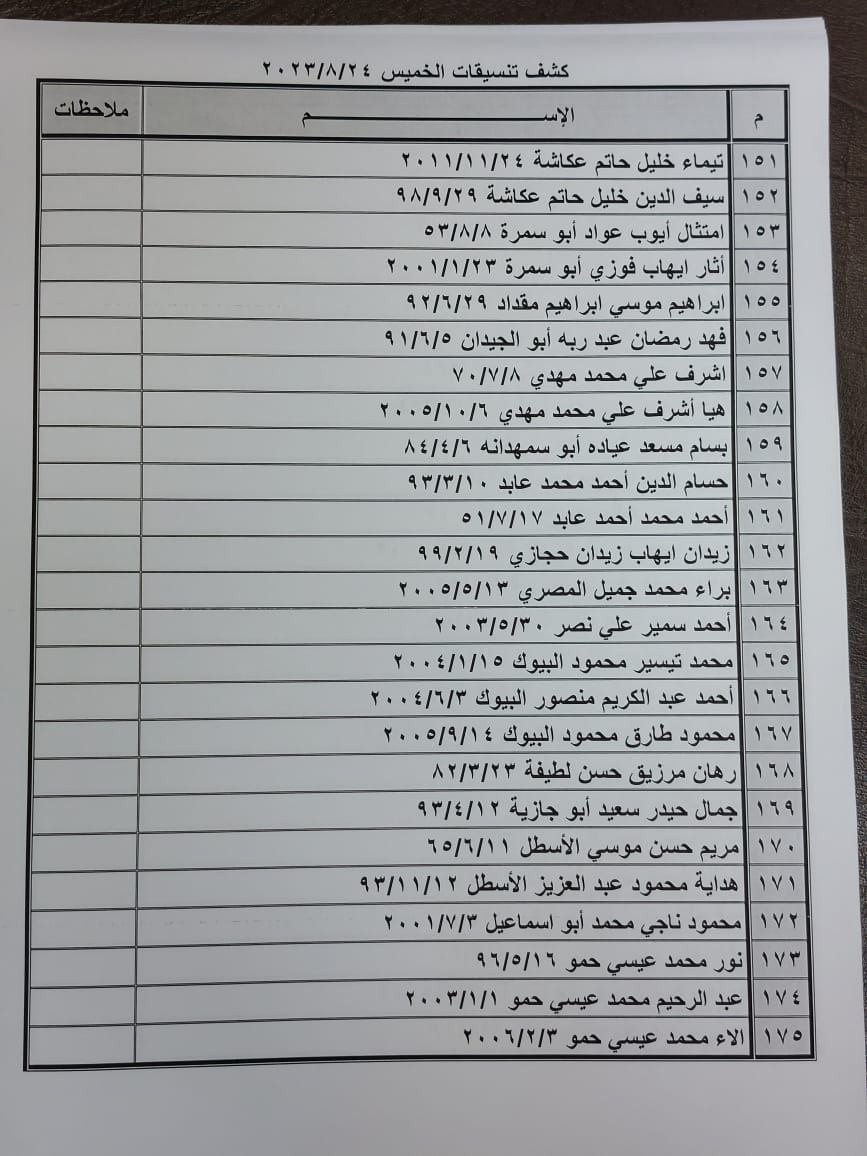 كشف تنسيقات الخميس ٢٠٢٣/٨/٢٤
م الإســـــــــم ملاحظات
١٥١ تيماء خليل حاتم عكاشة ٢٠١١/١١/٢٤
١٥٢ سيف الدين خليل حاتم عكاشة ٩٨/٩/٢٩
١٥٣ امتثال أيوب عواد أبو سمرة ٥٣/٨/٨
١٥٤ أثار ايهاب فوزي أبو سمرة ٢٠٠١/١/٢٣
١٥٥ ابراهيم موسي ابراهيم مقداد ٩٢/٦/٢٩
١٥٦ فهد رمضان عبد ربه أبو الجيدان ٩١/٦/٥
١٥٧ اشرف علي محمد مهدي ٧٠/٧/٨
١٥٨ هيا أشرف علي محمد مهدي ٢٠٠٥/١٠/٦
١٥٩ بسام مسعد عياده أبو سمهدانه ٨٤/٤/٦
١٦٠ حسام الدين أحمد محمد عابد ٩٣/٣/١٠
١٦١ أحمد محمد أحمد عابد ٥١/٧/١٧
١٦٢ زيدان ايهاب زيدان حجازي ٩٩/٢/١٩
١٦٣ براء محمد جميل المصري ٢٠٠٥/٥/١٣
١٦٤ أحمد سمير علي نصر ٢٠٠٣/٥/٣٠
١٦٥ محمد تيسير محمود البيوك ٢٠٠٤/١/١٥
١٦٦ أحمد عبد الكريم منصور البيوك ٢٠٠٤/٦/٣
١٦٧ محمود طارق محمود البيوك ٢٠٠٥/٩/١٤
١٦٨ رهان مرزيق حسن لطيفة ٨٢/٣/٢٣
١٦٩ جمال حيدر سعيد أبو جازية ٩٣/٤/١٢
١٧٠ مريم حسن موسي الأسطل ٦٥/٦/١١
١٧١ هداية محمود عبد العزيز الأسطل ٩٣/١١/١٢
١٧٢ محمود ناجي محمد أبو اسماعيل ٢٠٠١/٧/٣
١٧٣ نور محمد عيسي حمو ٩٦/٥/١٦
١٧٤ عبد الرحيم محمد عيسي حمو ٢٠٠٣/١/١
١٧٥ الاء محمد عيسي حمو ٢٠٠٦/٢/٣